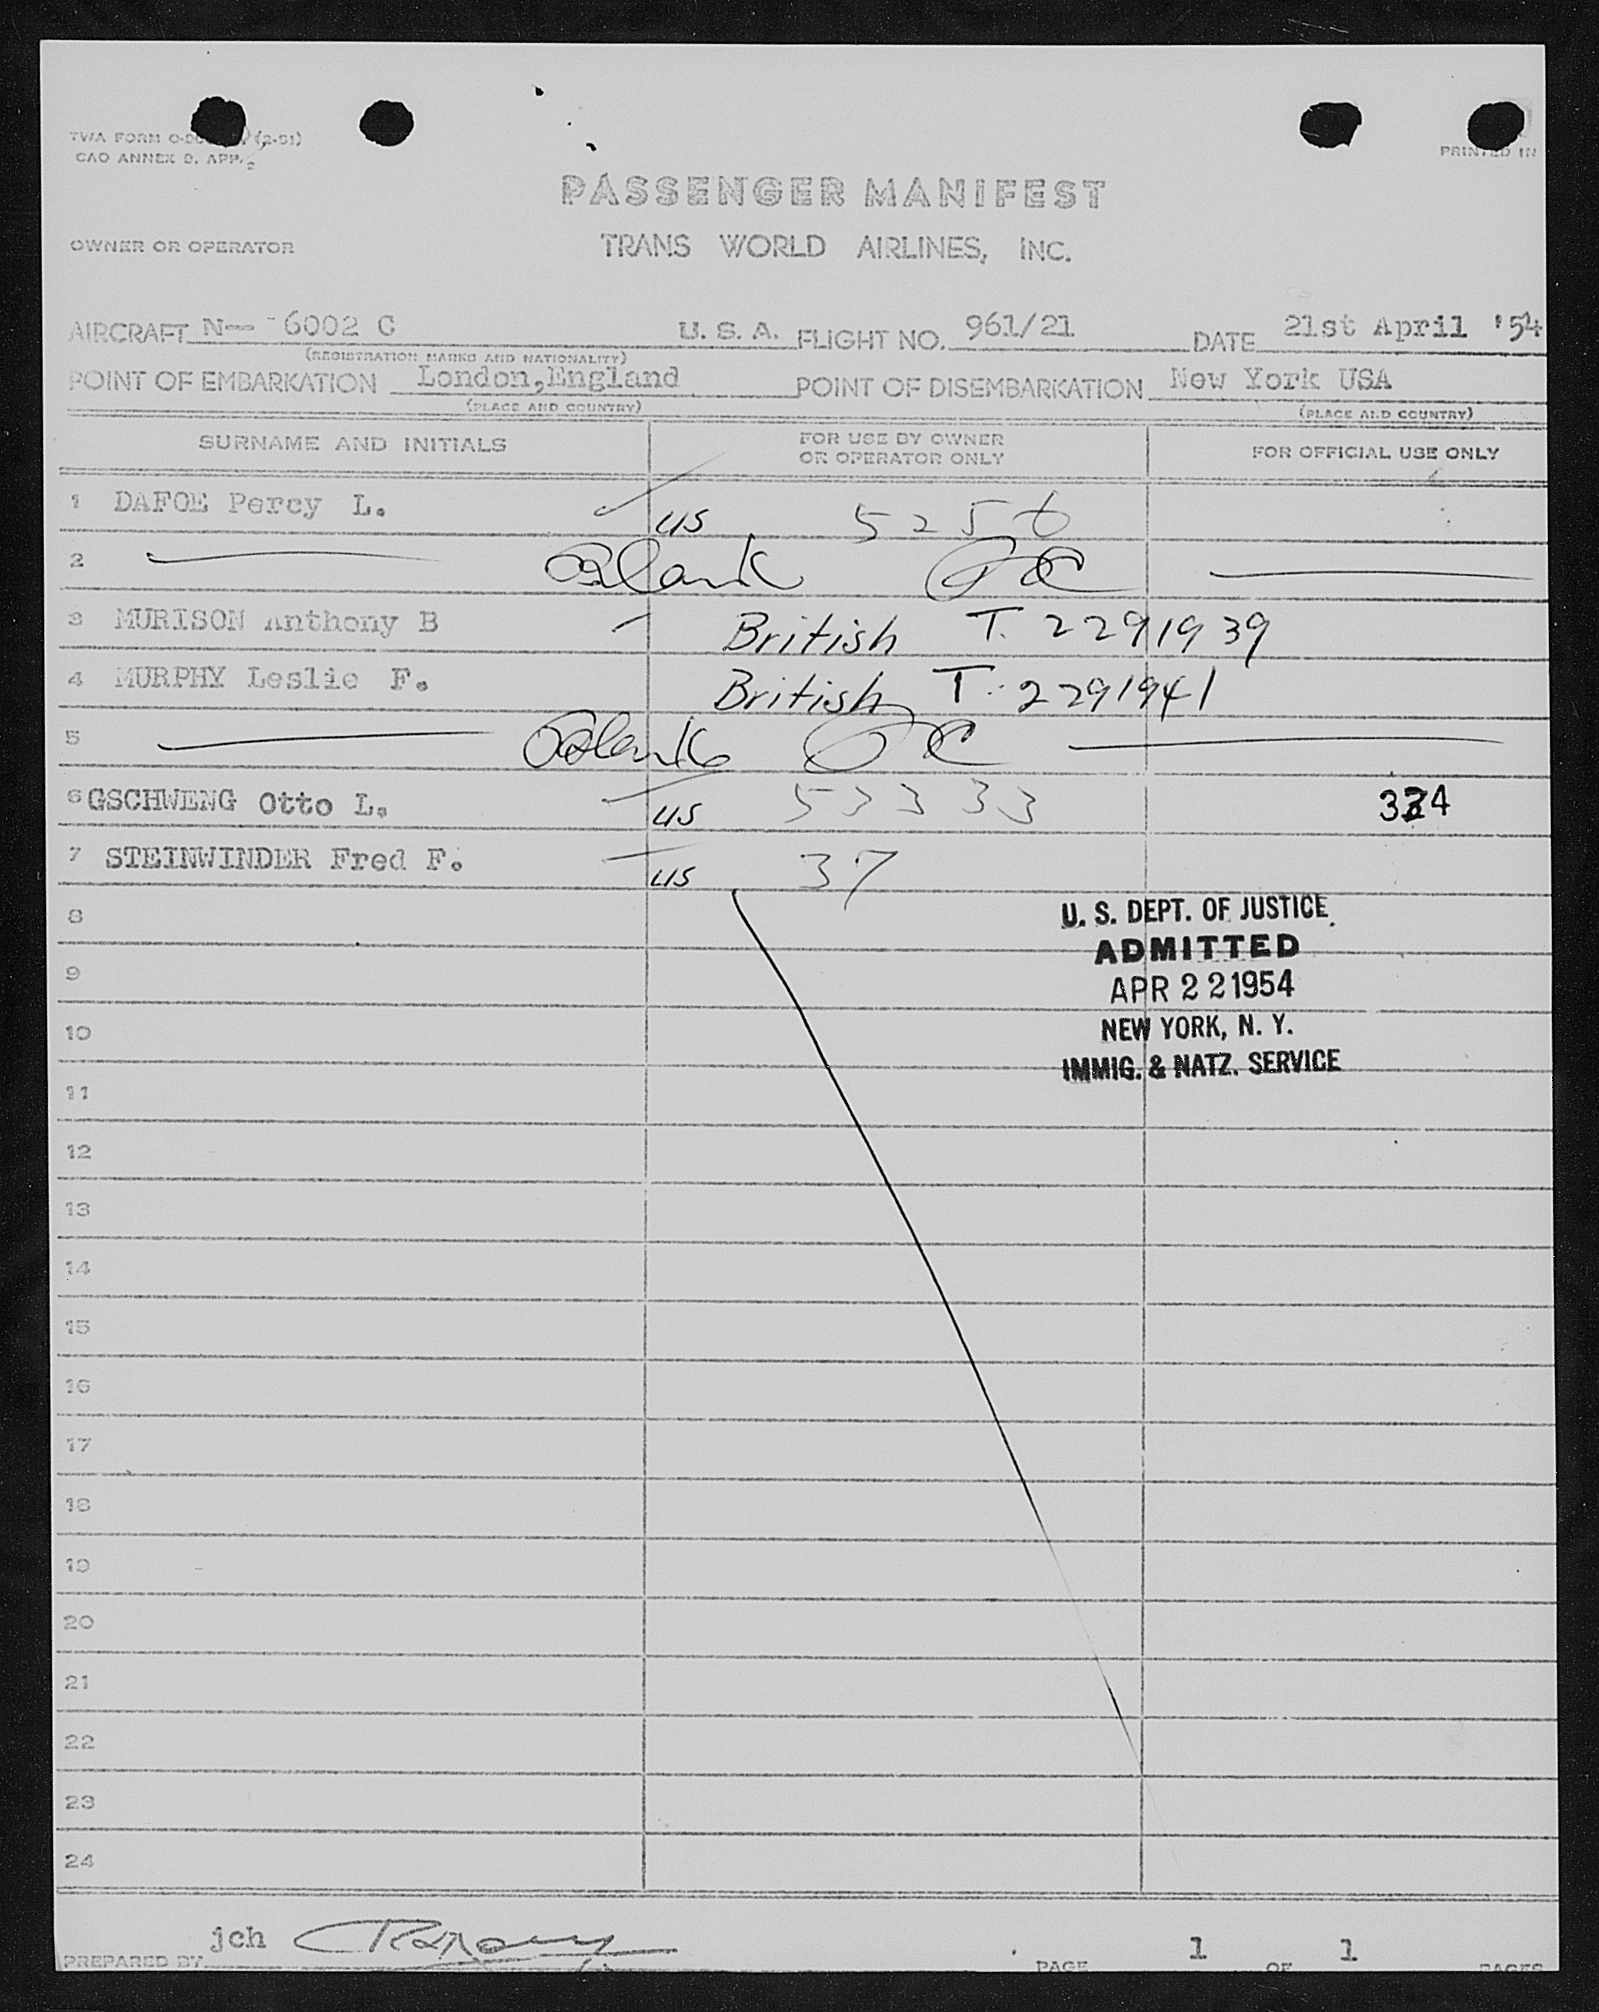 TWA FORM
CAO ANNEX 9, APP. 2
PRINTED IN
PASSENGER MANIFEST
OWNER OR OPERATOR TRANS WORLD AIRLINES, INC.
AIRCRAFT N-- 6002 C U. S. A. FLIGHT NO. 961/21 DATE 21st April '54
(REGISTRATION MARKS AND NATIONALITY)
POINT OF EMBARKATION London,England POINT OF DISEMBARKATION New York USA
(PLACE AND COUNTRY) (PLACE AND COUNTRY)
SURNAME AND INITIALS FOR USE BY OWNER OR OPERATOR ONLY FOR OFFICIAL USE ONLY
1 DAFOE Percy L. US 525
2 Blank
3 MURISON Anthony B British T. 2291939
4 MURPHY Leslie F. British T. 2291941
5 Blank
6 GSCHWENG Otto L. US 53333 334
7 STEINWINDER Fred F. US 37
8
U. S. DEPT. OF JUSTICE
ADMITTED
9
APR 22 1954
10
NEW YORK, N. Y.
IMMIG. & NATZ. SERVICE
11
12
13
14
15
16
17
18
19
20
21
22
23
24
PREPARED BY jch PAGE 1 OF 1 PAGES